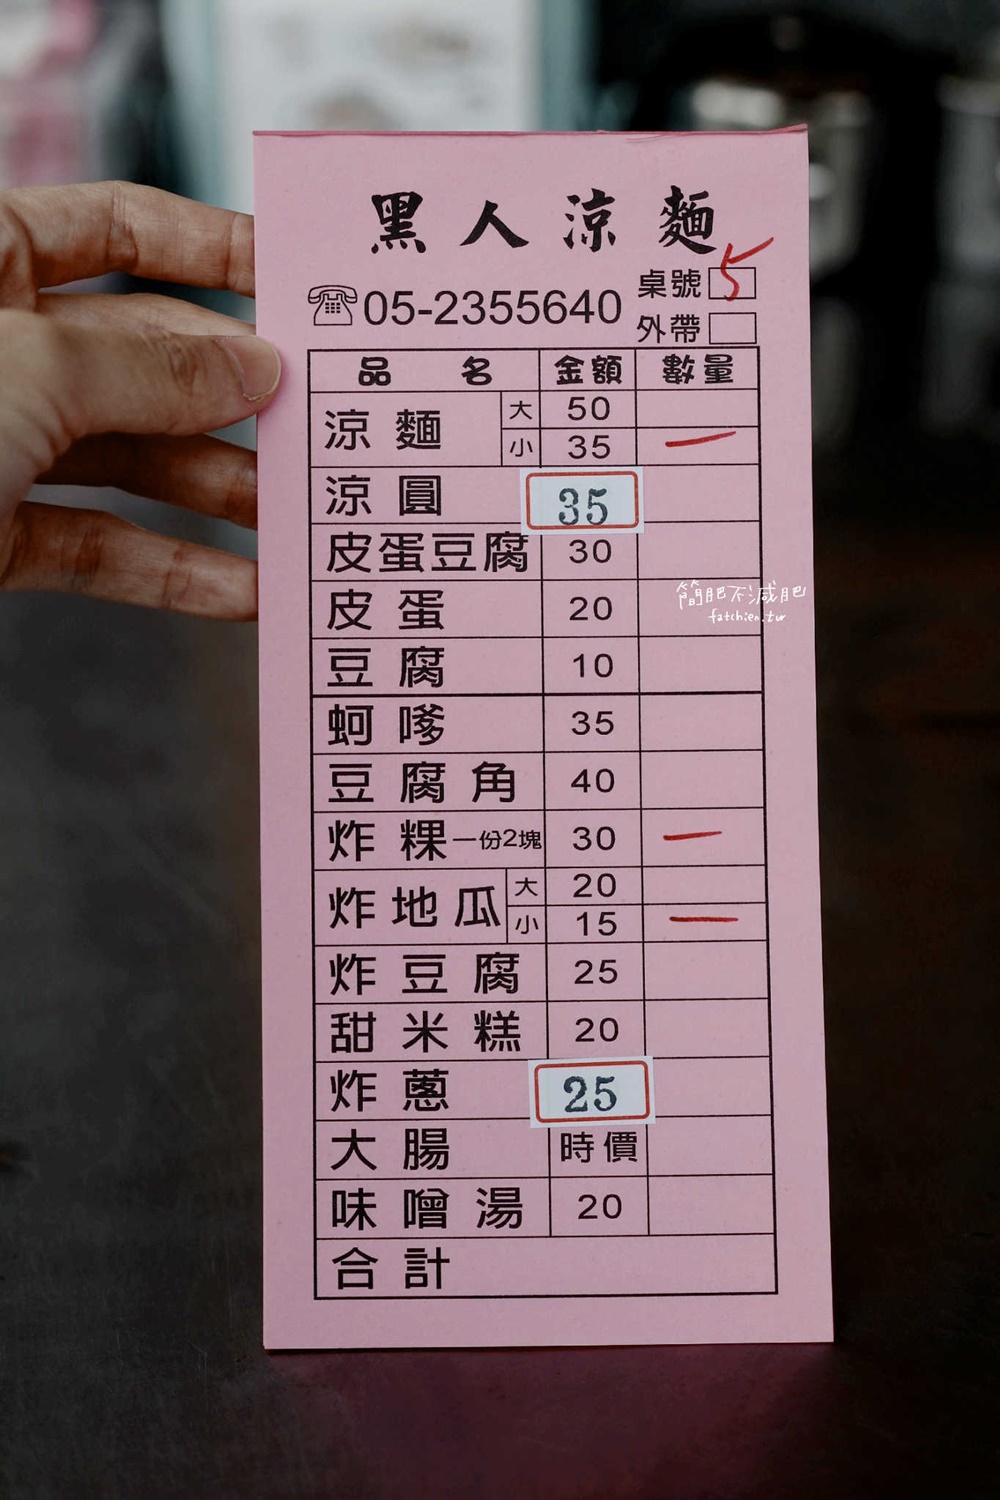 黑人涼麵
☏05-2355640
桌號 5
外帶
品名 金額 數量
涼麵 大 50
小 35 一
涼圓 35
皮蛋豆腐 30
皮蛋 20
豆腐 10
蚵嗲 35
豆腐角 40
炸粿一份2塊 30 一
炸地瓜 大 20
小 15 一
炸豆腐 25
甜米糕 20
炸蔥 25
大腸 時價
味噌湯 20
合計
簡肥不減肥
fatchien.tw